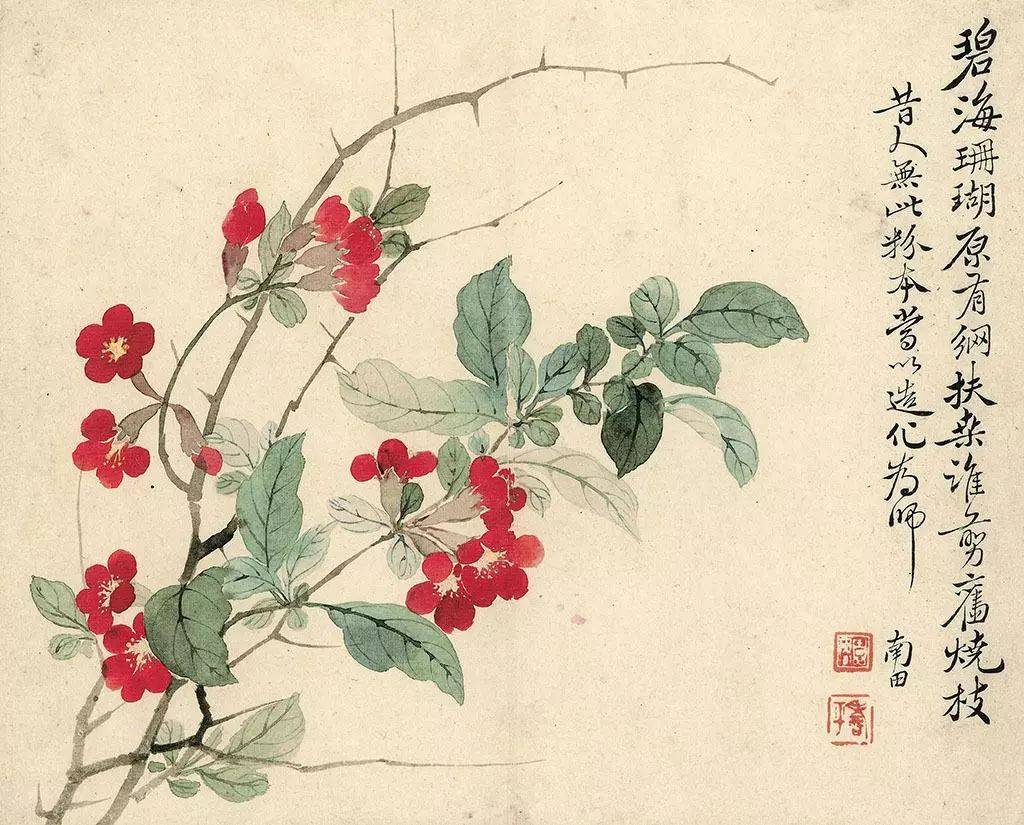 碧海珊瑚原有網扶桑誰剪舊燒枝
昔人無此粉本當以造化為師
南田
壽平